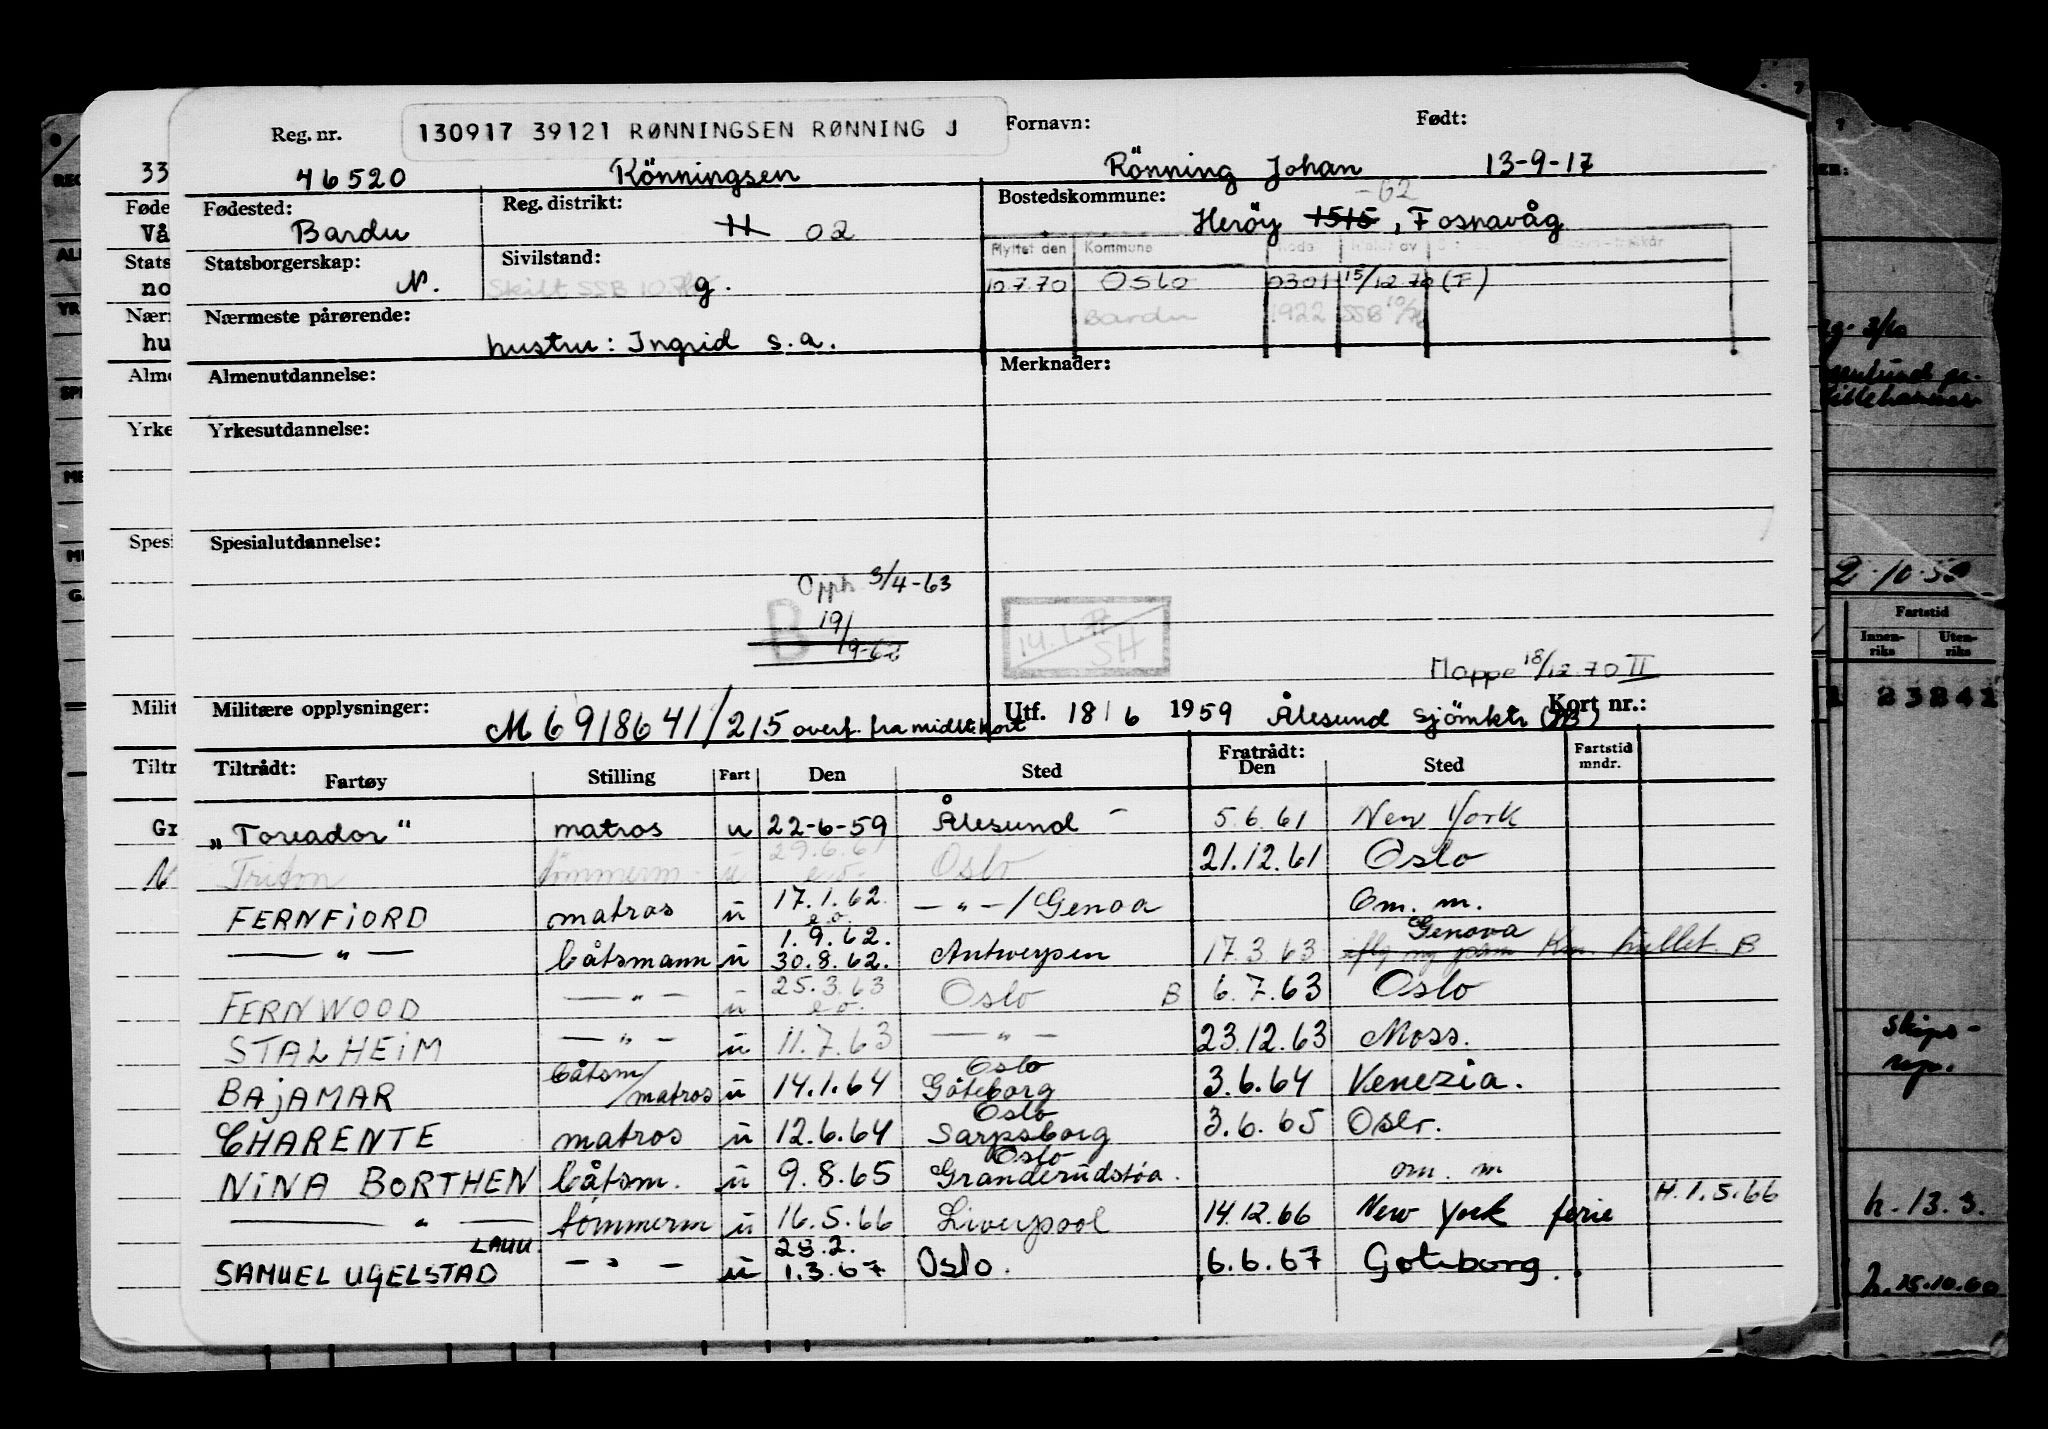 Reg. nr. 130917 39121 RØNNINGSEN RØNNING J Fornavn: Født:
33 46520 Rönningsen Rönning Johan 13-9-17
Føde Fødested: Reg. distrikt: Bostedskommune: -62
Vå Bardu 11 02 Heröy 1515, Fosnavåg
Stats Statsborgerskap: Sivilstand: Flyttet den Kommune Kode
no N. Skilt SSB g. 10.7.70 Oslo 0301 15/12.70 (F)
Nærm Nærmeste pårørende: Bardu 1922 SSB
hu hustru: Ingrid s.a.
Alme Almenutdannelse: Merknader:
Yrke Yrkesutdannelse:
Spesi Spesialutdannelse:
Opph. 3/4-63
B 19/9-62
SH
Mappe 18/12.70 II
Milit Militære opplysninger: M 6918641/215 overf. fra midl. kort Utf. 18/6 1959 Ålesund sjömktr Kort nr.:
Tiltr Tiltrådt: Fratrådt: Fartstid mndr.
Fartøy Stilling Fart Den Sted Den Sted
Gr „Toreador“ matros u 22-6-59 Ålesund - 5.6.61 New York
Triton tömmerm. u 29.6.61 e.o. Oslo 21.12.61 Oslo
FERNFIORD matros u 17.1.62. e.o. — " — / Genoa Om. m.
— " — båtsmann u 1.9.62. 30.8.62. Antwerpen 17.3.63 Genova B
FERNWOOD — " — u 25.3.63 e.o. Oslo B 6.7.63 Oslo
STALHEIM — " — u 11.7.63 — " — 23.12.63 Moss.
BAJAMAR båtsm/matros u 14.1.64 Oslo Göteborg 3.6.64 Venezia.
CHARENTE matros u 12.6.64 Oslo Sarpsborg 3.6.65 Oslo.
NINA BORTHEN båtsm. u 9.8.65 Oslo om. m
— " — tömmerm u 16.5.66 Liverpool 14.12.66 New York ferie H. 1.5.66
SAMUEL UGELSTAD LAUU. — " — u 1.3.67 Oslo. 6.6.67 Goteborg.
2-10-59
Fartstid
Innenriks Utenriks
1 2 3 2 4 1
Skips-
h. 13.3.
h. 15.10.60